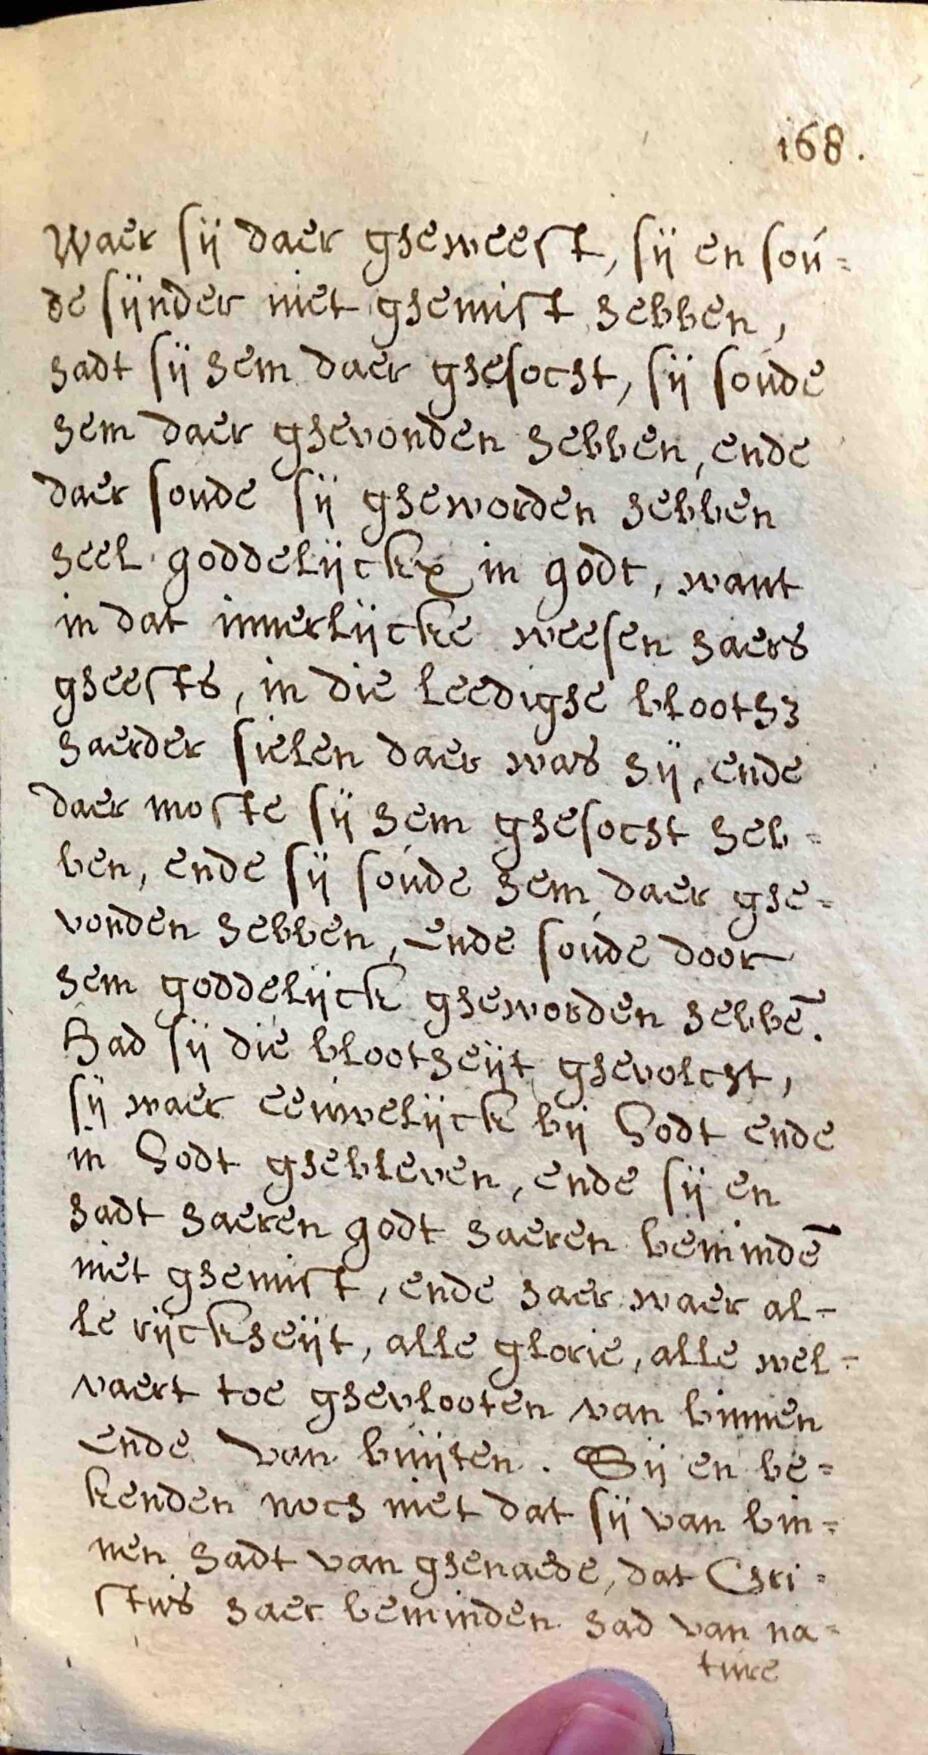 168.
Waer sij daer gheweest, sij en sou=
de sijnder niet ghemist hebben,
hadt sij hem daer ghesocht, sij soude
hem daer ghevonden hebben, ende
daer soude sij gheworden hebben
heel goddelijckx in godt, want
in dat innerlijcke weesen haers
gheests, in die leedighe blooth3
haerder sielen daer was hij, ende
daer moste sij hem ghesocht heb=
ben, ende sij soude hem daer ghe=
vonden hebben, ende soude door
hem goddelijck gheworden hebbē.
Had sij die blootheijt ghevolcht,
sij waer eeuwelijck bij Godt ende
in Godt ghebleven, ende sij en
hadt haeren godt haeren bemindē
niet ghemist, ende haer waer al=
le rijckheijt, alle glorie, alle wel=
vaert toe ghevlooten van binnen
ende van buijten. Sij en be=
kenden noch niet dat sij van bin=
nen hadt van ghenaede, dat Chri=
stus haer beminden had van na=
ture